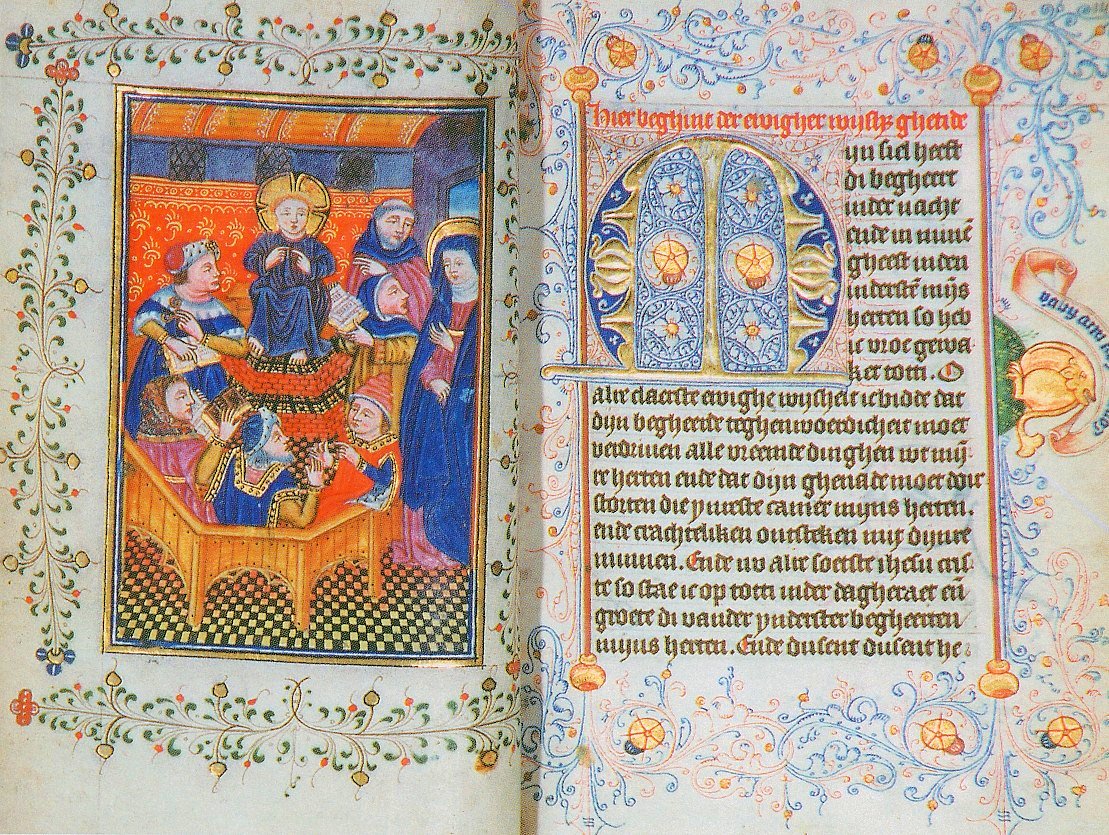 Hier beghint der ewigher wijsh. ghetide
M
ijn siel heeft
di begheert
inder nacht
ende in minē
gheest in den
indersten mijs
herten so heb
ic vroe gewa
ket totti. O
alre claerste ewighe wijsheit ic bidde dat
dijn begheerde teghenwoerdicheit moet
verdriuen alle vreemde dinghen wt mij
re herten ende dat dijn ghenade moet dor
storten die ynreste camer mijns herten.
ende crachteliken ontsteken mit dijnre
minnen. Ende nv alre soetste ihesu cris
te so stae ic op totti inder dagheraet eñ
groete di vander ynderster begheerten
mijns herten. Ende dusent dusent he